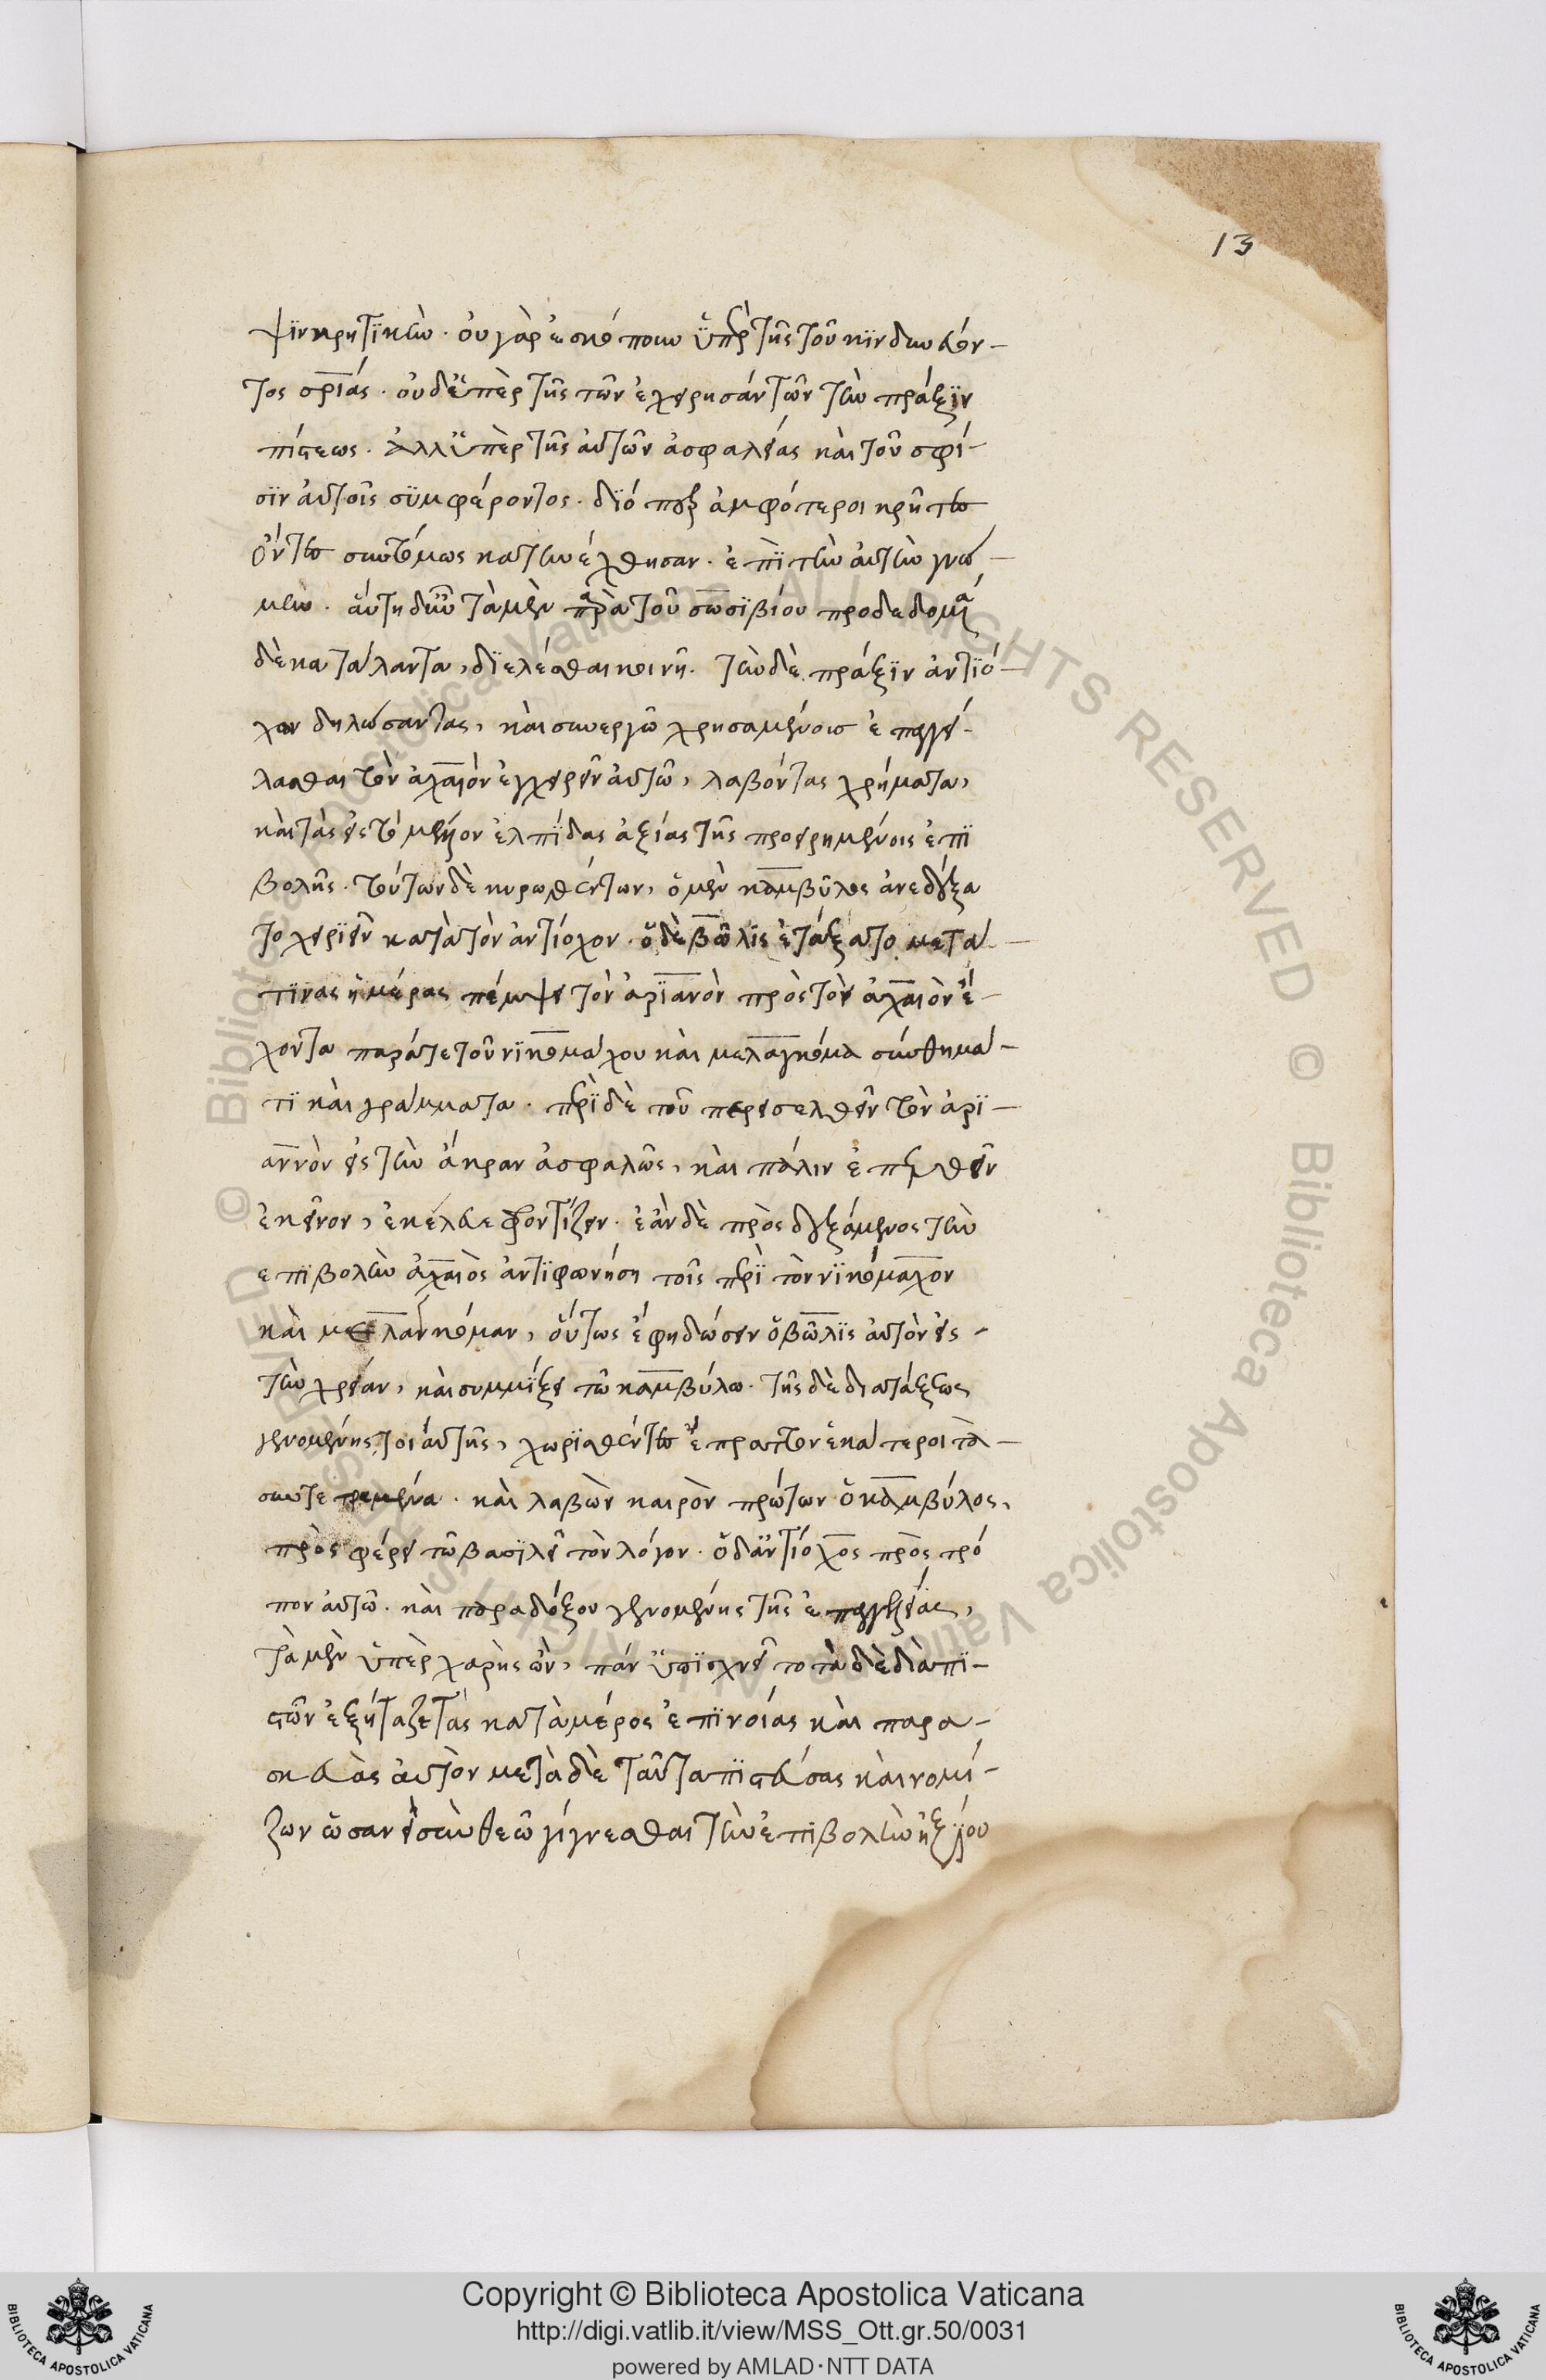 13
ψϊν κρητϊκὴν· οὐ γὰρ ἐσκόπουν ϋπὲρ τῆς τοῦ κϊνδυνεύον-
τος σρίας· οὐδ' ϋπὲρ τῆς τῶν ἐγχειρησάντων τὴν πράξϊν
πίστεως· ἀλλ' ϋπὲρ τῆς αὐτῶν ἀσφαλείας καὶ τοῦ σφί-
σϊν αὐτοῖς συμφέροντος· δϊόπερ ἀμφότεροι κρῆτες
ὄντες συντόμως κατηνέχθησαν· ἐπϊ τὴν αὐτὴν γνώ-
μην· αὕτη δ' ἦν τὰ μὲν παρὰ τοῦ σωσϊβίου προδεδομένα
δὲκα τάλαντα, δϊελέσθαι κοινῆ· τὴν δὲ πράξϊν ἀντϊό-
χου δηλώσαντας, καὶ συνεργῶ χρησαμένοις ἐπαγγεί-
λασθαι τὸν ἀχαιὸν ἐγχειρεῖν αὐτῶ, λαβόντας χρήματα,
καὶ τὰς εἰς τὸ μέλλον ἐλπϊδας ἀξίας τῆς προειρημένοις ἐπϊ
βολῆς· τούτων δὲ κυρωθέντων, ὁ μὲν καμβῦλος ἀνεδέξα
το χειρϊεῖν κατὰ τὸν ἀντίοχον· ὁ δὲ βῶλϊς ἐτάξατο μετά
τϊνας ἡμέρας πέμψει τὸν ἀρϊανὸν πρὸς τὸν ἀχαιὸν ἔ-
χοντα παράτε τοῦ νϊκομάχου καὶ μελαγκόμα σύνθημά-
τϊ καὶ γράμματα· περϊ δὲ τοῦ παρεισελθεῖν τὸν ἀρϊ-
αννὸν εἰς τὴν ἄκραν ἀσφαλῶς, καὶ πάλιν ἐπελθεῖν
ἐκεῖνον, ἐκέλευε φροντίζειν· ἐὰν δὲ πρὸς δεξάμενος τὴν
επϊβολὴν ἀχαιὸς ἀντϊφωνήση τοῖς περϊ τὸν νϊκόμαχον
καὶ μελαγκόμαν, οὕτως ἔφη δώσειν ὁ βῶλϊς αὐτὸν εἰς
τὴν χρείαν, καὶ συμμϊξει τῶ καμβύλω· τῆς δὲ διατάξεως
γενομένης τοιαύτης, χωρϊσθέντες ἔπραττον ἑκάτεροι τὰ
συντεταγμένα· καὶ λαβὼν καιρὸν πρώτων ὁ καμβύλος,
πρὸς φέρει τῶ βασϊλεῖ τὸν λόγον· ὁ δ' ἀντϊόχος πρὸς τρό
πον αὐτῶ· καὶ παραδόξου γενομένης τῆς ἐπαγγελείας,
τὰ μὲν ὑπὲρ χαρὴς ὢν, πάν ϋπϊσχνεῖτο τὰ δὲ δϊαπϊ-
στῶν ἐξήταζε τὰς κατὰ μέρος ἐπϊνοίας καὶ παρα-
σκευὰς αὐτὸν μετὰ δὲ ταῦτα πϊστεύσας καὶ νομί-
ζων ὡσανεὶ σὺν θεῶ γίγνεσθαι τὴν ἐπϊβολὴν ἠξϊου
Copyright © Biblioteca Apostolica Vaticana
http://digi.vatlib.it/view/MSS_Ott.gr.50/0031
powered by AMLAD·NTT DATA